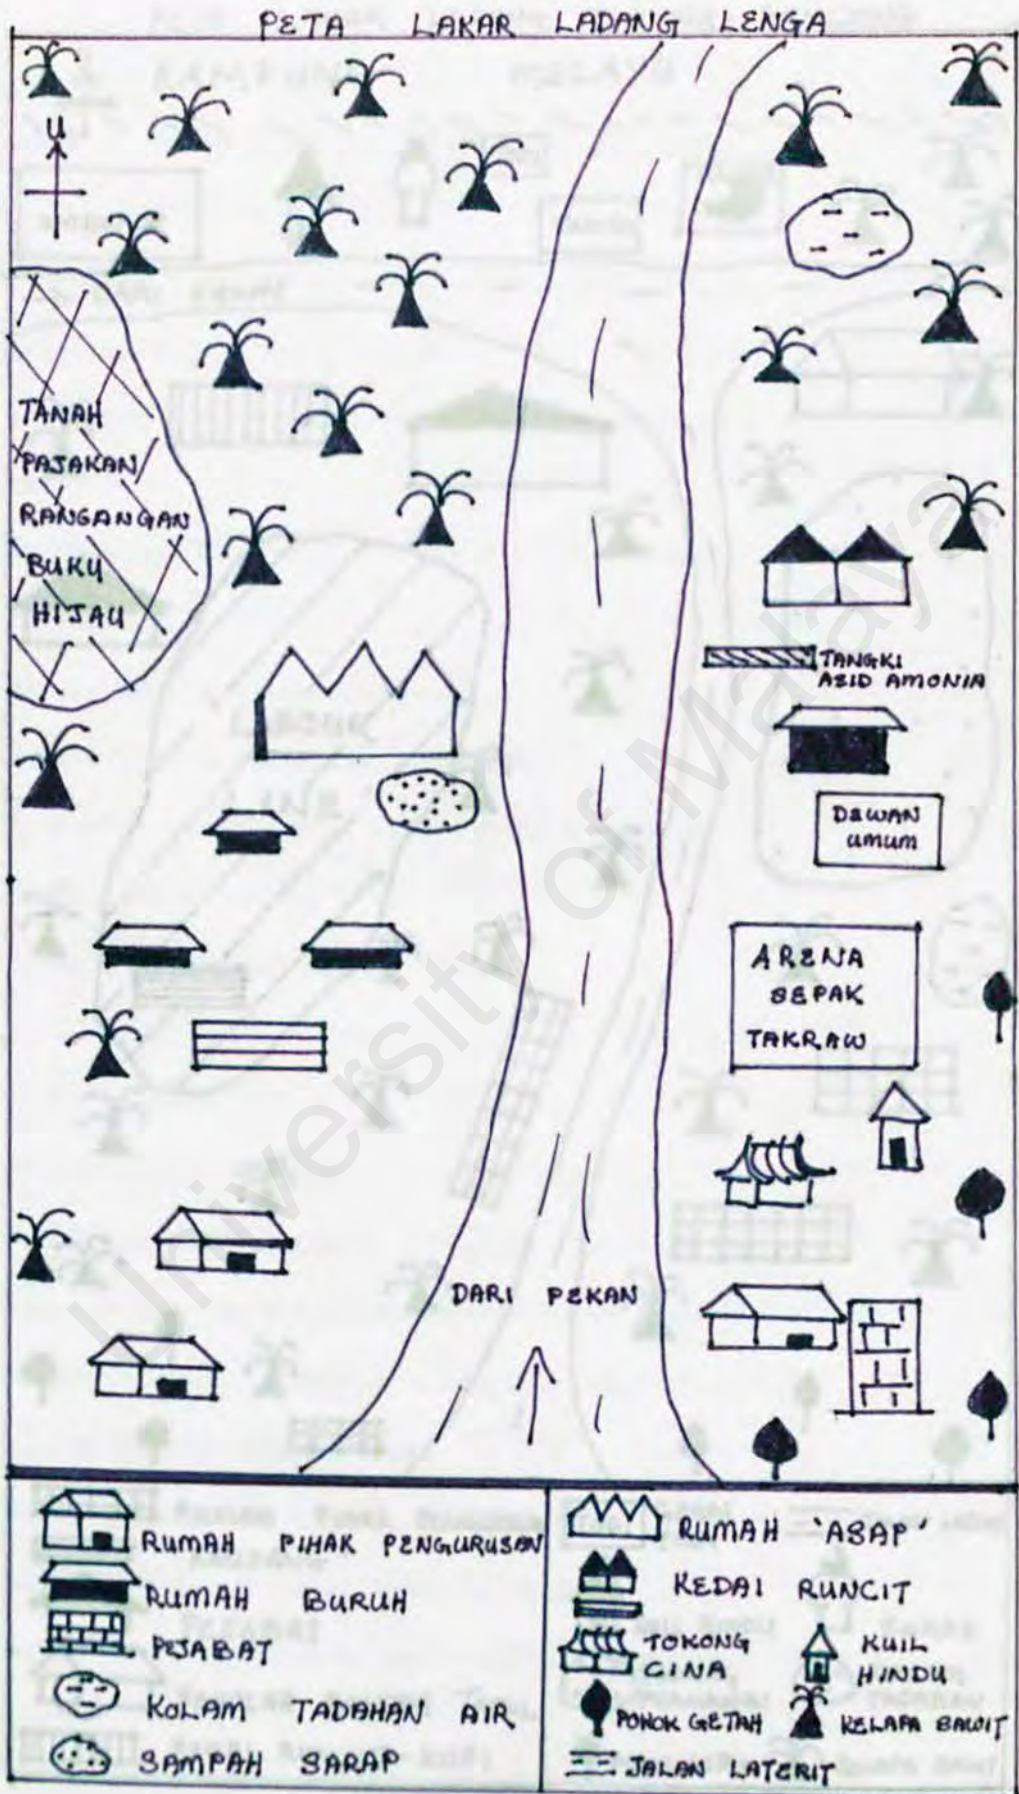 PETA LAKAR LADANG LENGA
U
TANAH
PAJAKAN
RANGANGAN
BUKU
HIJAU
TANGKI
ASID AMONIA
DEWAN
UMUM
ARENA
SEPAK
TAKRAW
DARI PEKAN
RUMAH PIHAK PENGURUSAN
RUMAH BURUH
PEJABAT
KOLAM TADAHAN AIR
SAMPAH SARAP
RUMAH 'ASAP'
KEDAI RUNCIT
TOKONG
CINA
KUIL
HINDU
POKOK GETAH
KELAPA SAWIT
JALAN LATERIT
University of Malaya